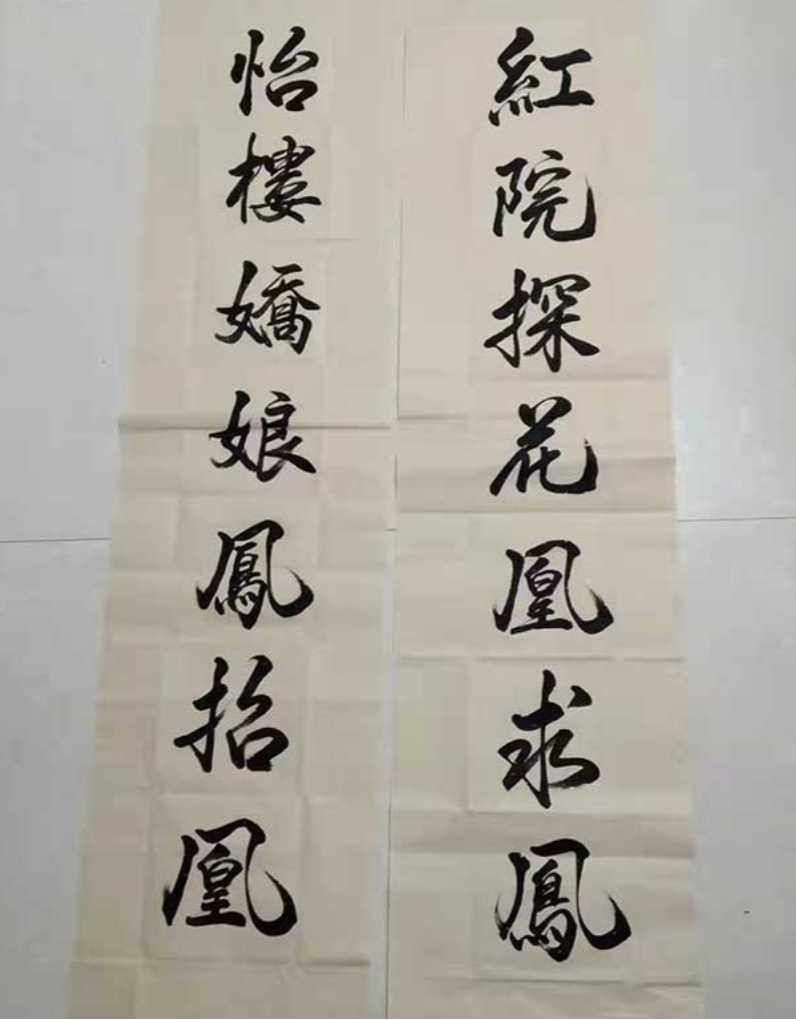 紅院探花凰求鳳
怡樓嬌娘鳳招凰